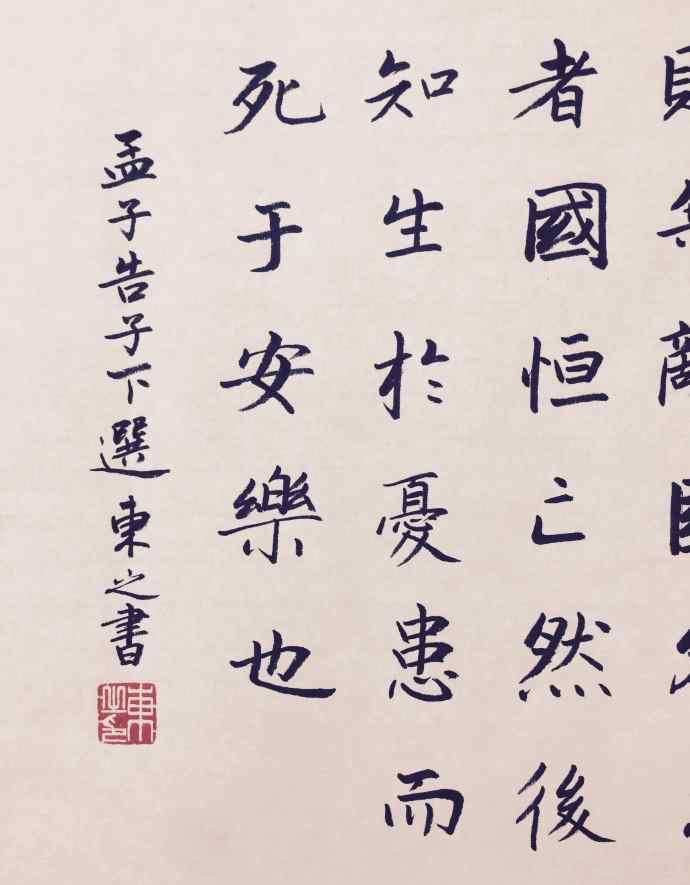 者國恒亡然後
知生於憂患而
死于安樂也
孟子告子下選東之書
東之印